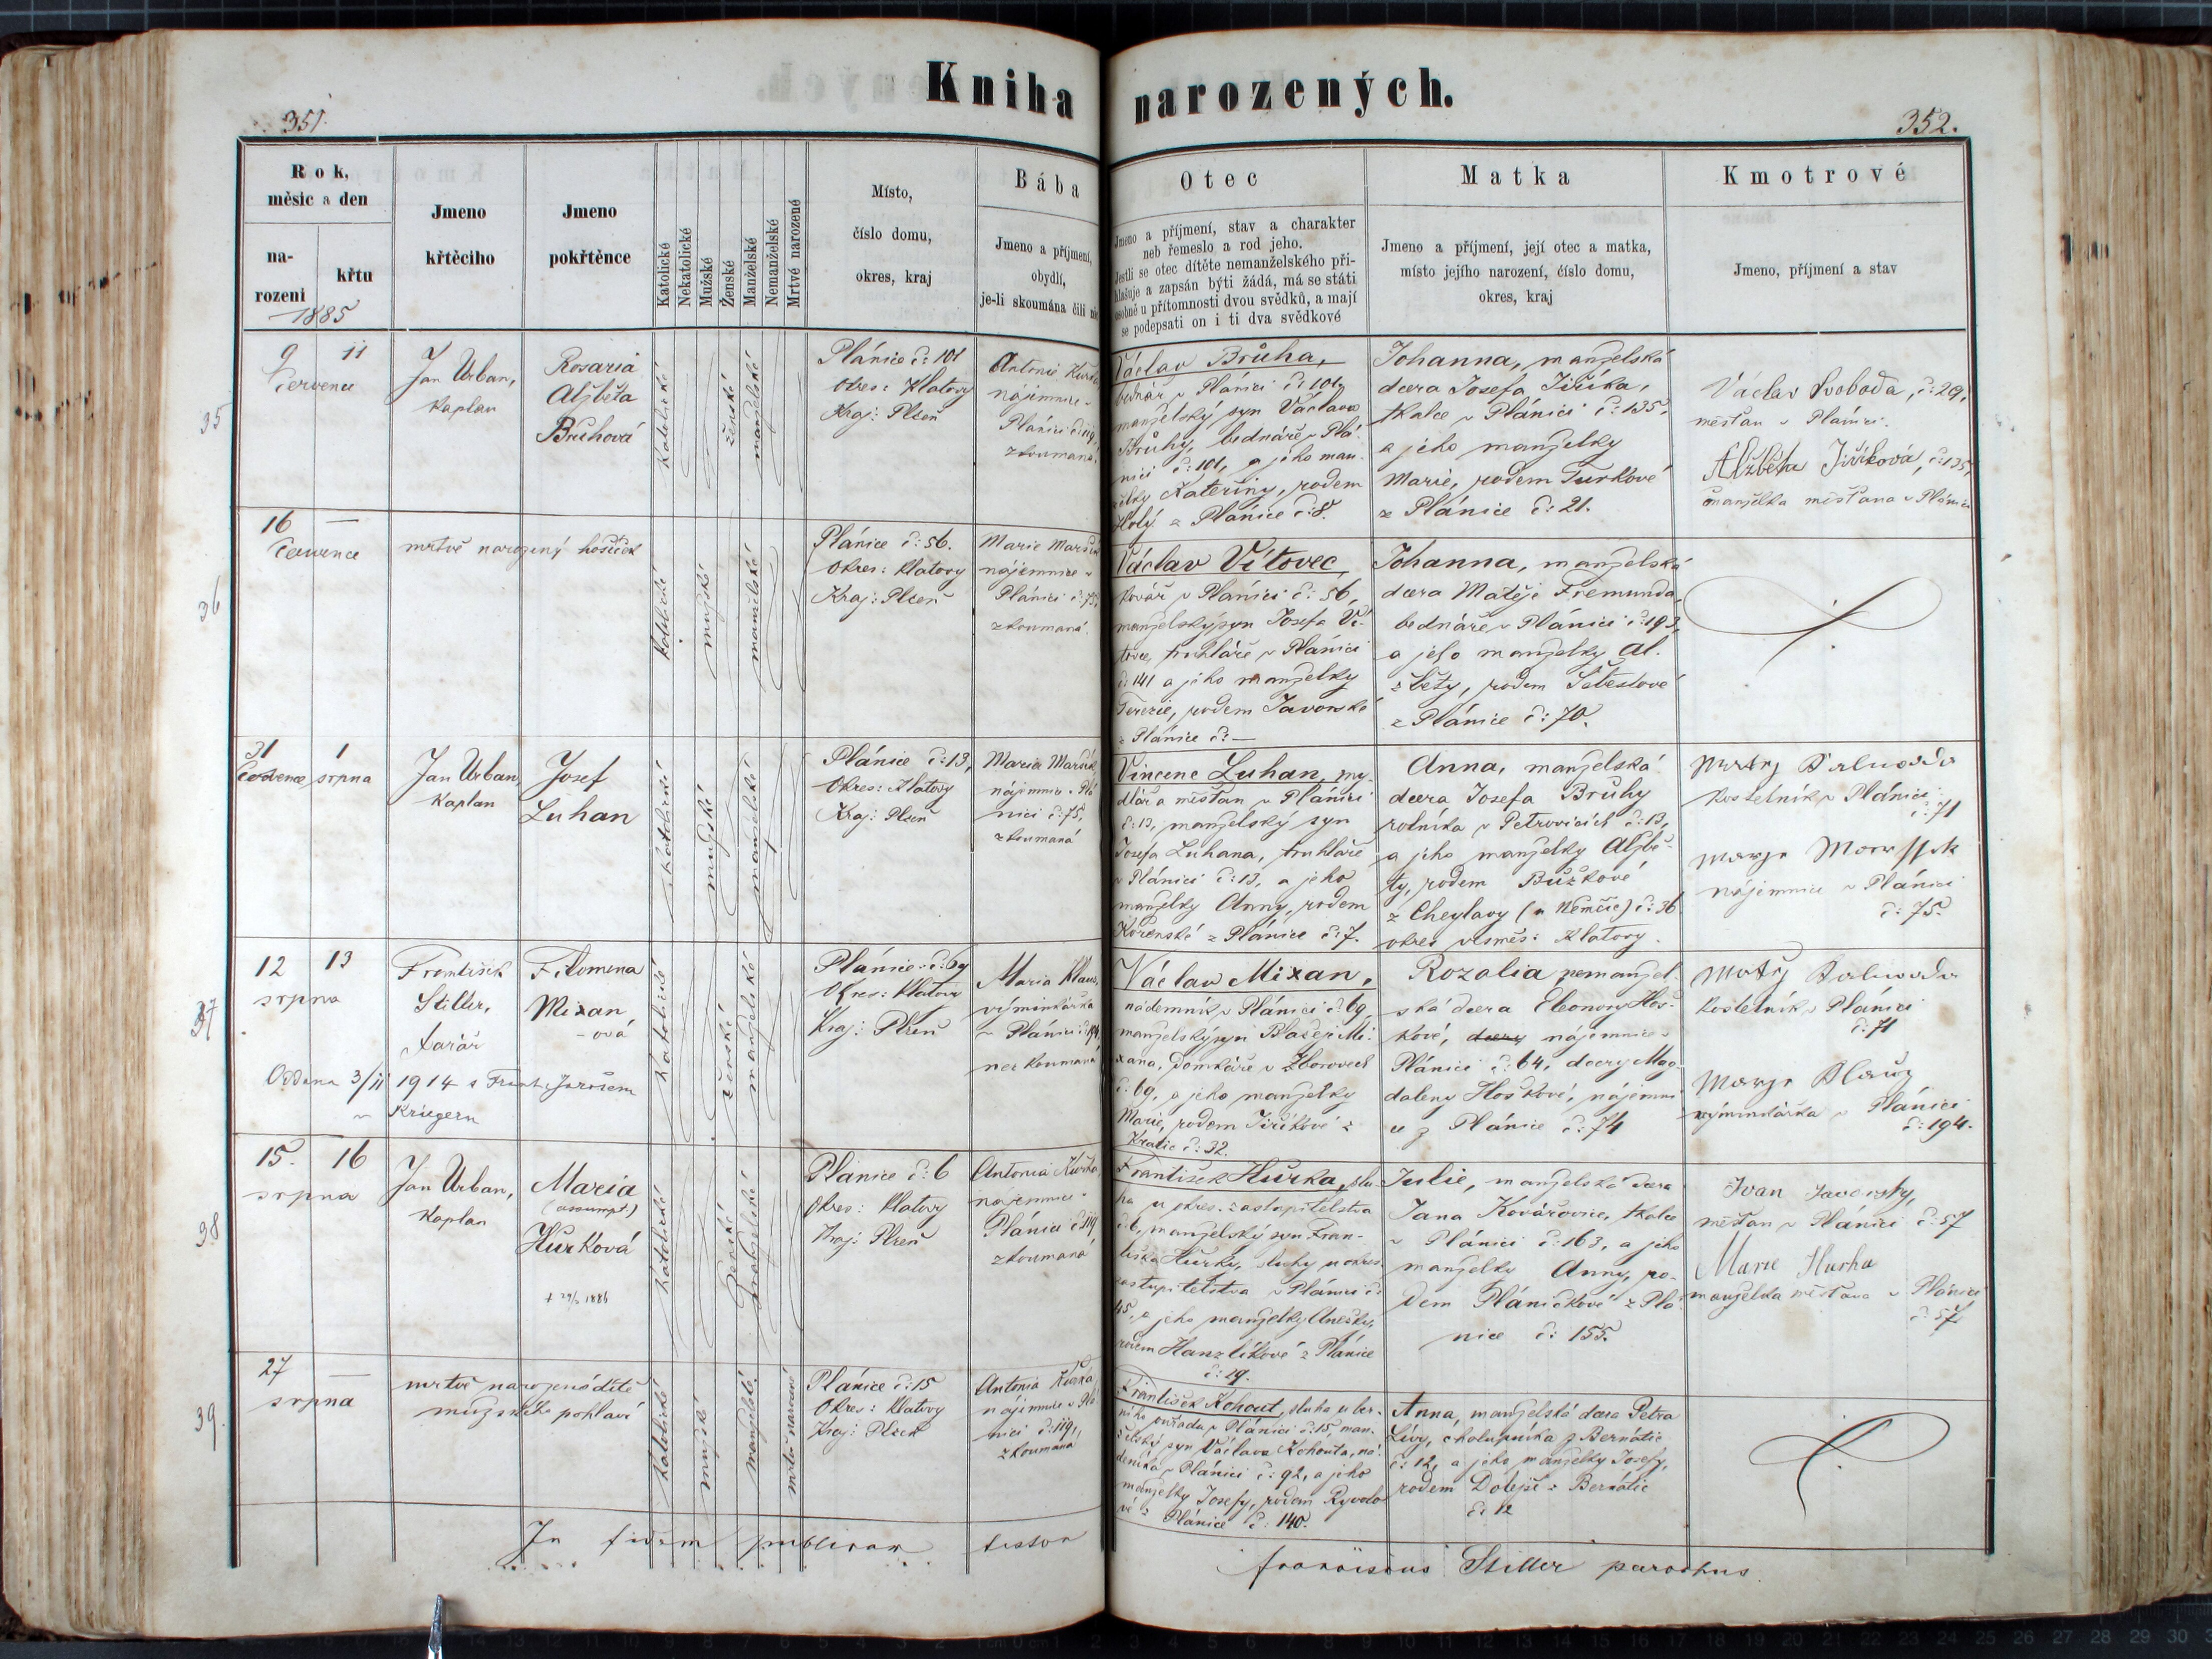 Kniha narozených.
351.
352.
Rok,
měsíc a den
na-
rozeni
křtu
1885
Jmeno
křtěcího
Jmeno
pokřtěnce
Katolické
Nekatolické
Mužské
Ženské
Manželské
Nemanželské
Mrtvé narozené
Místo,
číslo domu,
okres, kraj
Bába
Jmeno a příjmení,
obydlí,
je-li skoumána čili
Otec
Jmeno a příjmení, stav a charakter
neb řemeslo a rod jeho.
Jestli se otec dítěte nemanželského při-
hlašuje a zapsán býti žádá, má se státi
osobně u přítomnosti dvou svědků, a mají
se podepsati on i ti dva svědkové
Matka
Jmeno a příjmení, její otec a matka,
místo jejího narození, číslo domu,
okres, kraj
Kmotrové
Jmeno, příjmení a stav
35
9 11
Července
Jan Urban,
Kaplan
Rosaria
Alžběta
Brůhová
katolické
ženské
manželské
Plánice č: 101
Okres: Klatovy
Kraj: Plzeň
Antonie
nájemnice v
Plánici č: 119,
zkoumaná
Václav Brůha,
bednář v Plánici č: 101,
manželský syn Václava
Brůhy, bednáře v Plá-
nici č: 101, a jeho man-
želky Kateřiny, rodem
Holý z Plánice č: 8.
Johanna, manželská
dcera Josefa Jiříka,
tkalce v Plánici č: 135,
a jeho manželky
Marie, rodem Turkové
z Plánice č: 21.
Václav Svoboda, č: 29,
měšťan v Plánici.
Alžběta Jiříková, č: 135,
manželka měšťana v Plánici
36
16 —
Července
mrtvě narozený hošíček
katolické
mužské
manželské
Plánice č: 56.
Okres: Klatovy
Kraj: Plzeň
Marie Maršík
nájemnice v
Plánici č: 75,
zkoumaná.
Václav Vítovec,
kovář v Plánici č: 56,
manželský syn Josefa Ví-
tovce, truhláře v Plánici
č: 141 a jeho manželky
Terezie, rodem Javorské
z Plánice č: —
Johanna, manželská
dcera Matěje Fremunda,
bednáře v Plánici č: 193,
a jeho manželky Al-
žběty, rodem
z Plánice č: 70.
31 1
Července srpna
Jan Urban,
Kaplan
Josef
Luhan
katolické
mužské
manželské
Plánice č: 13,
Okres: Klatovy
Kraj: Plzeň
Maria Maršík,
nájemnice v Plá-
nici č: 75,
zkoumaná
Vincenc Luhan, my-
dlář a měšťan v Plánici
č: 13, manželský syn
Josefa Luhana, truhláře
v Plánici č: 13, a jeho
manželky Anny, rodem
Kořenské z Plánice č: 7.
Anna, manželská
dcera Josefa Brůhy
rolníka v Petrovicích č: 13,
a jeho manželky Alžbě-
ty, rodem Bůžkové
z Cheylavy (u Němčic) č: 36
okres vesměs: Klatovy.
kostelník v Plánici
č: 71
nájemnice v Plánici
č: 75.
37
12 13
srpna
František
Stiller,
farář
Filomena
Mixan
-ová
katolické
ženské
manželské
Plánice č: 69
Okres: Klatovy
Kraj: Plzeň
Maria Klaus,
výminkářka
v Plánici č: 194,
nezkoumaná
Oddána 3/II 1914 s Frant. Jarošem
v Kriegern
Václav Mixan,
nádenník v Plánici č: 69,
manželský syn Blažeje Mi-
xana, domkáře v Zborovech
č: 69, a jeho manželky
Marie, rodem Jiříkové z
Kratic č: 32.
Rozalia, nemanžel-
ská dcera Eleonory Hoš-
kové, dcery nájemnice v
Plánici č: 64, dcery Mag-
daleny Hoškové, nájemni-
ce z Plánice č: 74
kostelník v Plánici
č: 71
výminkářka v Plánici
č: 194.
38
15. 16
srpna
Jan Urban,
Kaplan
Maria
(assumpt.)
Hůrková
katolické
ženské
manželské
Plánice č: 6
Okres: Klatovy
Kraj: Plzeň
Antonia
nájemnice v
Plánici č: 119
zkoumaná
František Hůrka, slu-
ha u okres. zastupitelstva
č: 6, manželský syn Fran-
tiška Hůrky, sluhy u okres.
zastupitelstva v Plánici č:
45, a jeho manželky Anežky,
rodem Hanzlíkové z Plánice
č: 19.
Julie, manželská dcera
Jana Kovářovice, tkalce
v Plánici č: 163, a jeho
manželky Anny, ro-
dem Pláničkové z Plá-
nice č: 155.
měšťan v Plánici č: 57
Marie
manželka měšťana v Plánici
č: 57
39.
27 —
srpna
mrtvě narozené dítě
mužského pohlaví
katolické
mužské
manželské
mrtvě narozené
Plánice č: 15
Okres: Klatovy
Kraj: Plzeň
Antonia
nájemnice v Plá-
nici č: 119,
zkoumaná
František Kohout, sluha u ber-
ního ouřadu v Plánici č: 15, man-
želský syn Václava Kohouta, ná-
deníka v Plánici č: 92, a jeho
manželky Josefy, rodem Ryvolo-
vé z Plánice č: 140.
Anna, manželská dcera Petra
Lívy, chalupníka z Bernátic
č: 12, a jeho manželky Josefy,
rodem Dolejší z Bernátic
č: 12
In fidem publicam testor
Franciscus Stiller parochus